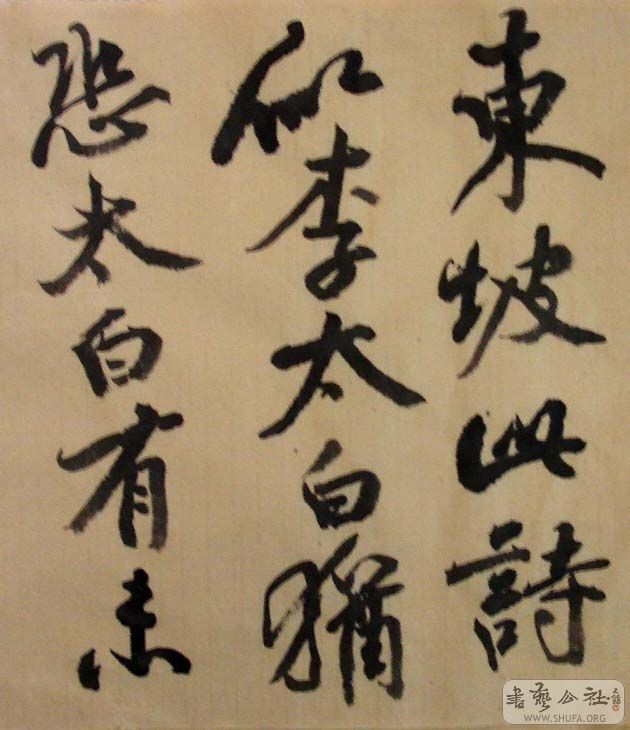 東坡此詩
似李太白猶
恐太白有未
書藝公社
WWW.SHUFA.ORG